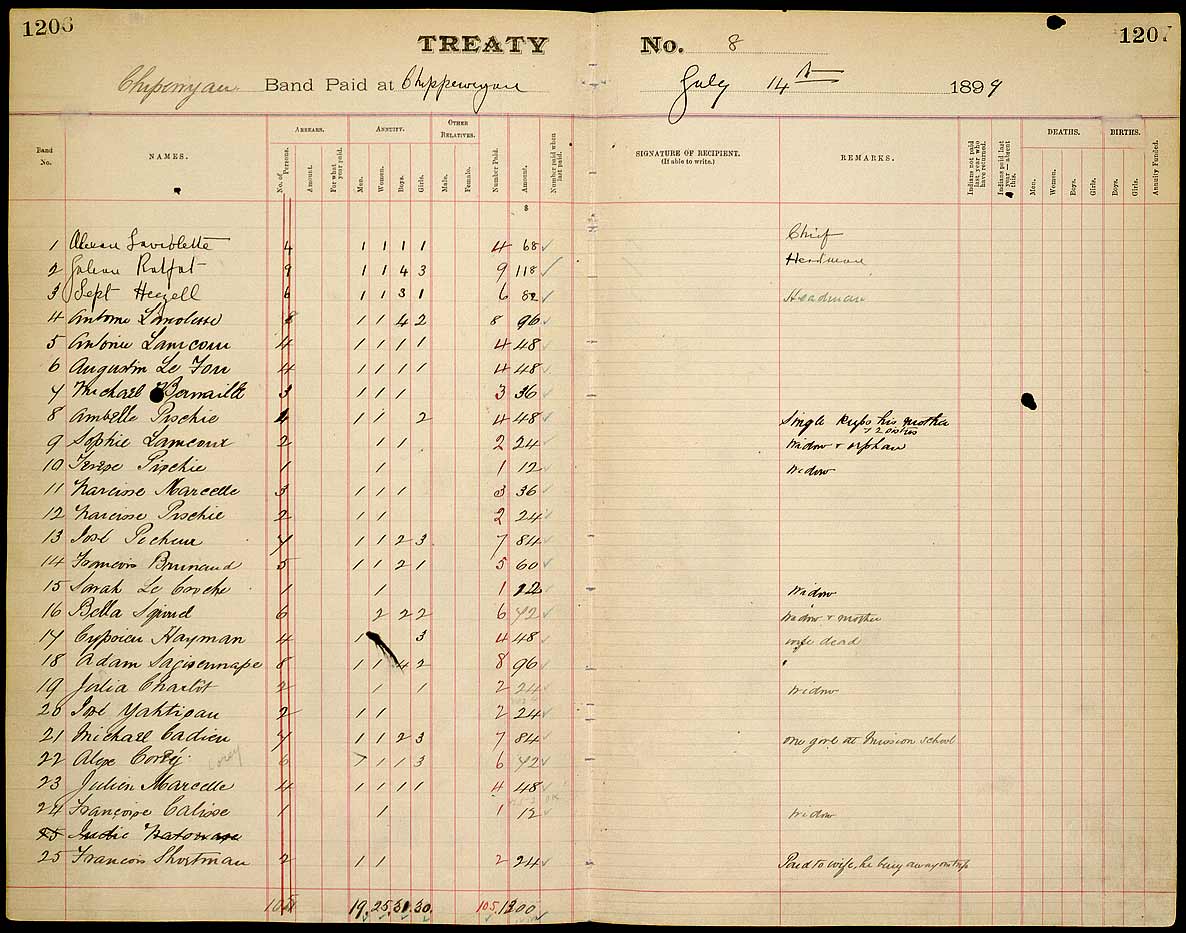 1206
1207
TREATY No. 8
Chipewyan Band Paid at Chippewyan July 14th 1899
Band No.
NAMES.
ARREARS.
No. of Persons.
Amount.
For what year paid.
ANNUITY.
Men.
Women.
Boys.
Girls.
OTHER RELATIVES.
Male.
Female.
Number Paid.
Amount.
Number paid when last paid.
SIGNATURE OF RECIPIENT.
(If able to write.)
REMARKS.
Indians not paid last year who have returned.
Indians paid last year — absent this.
DEATHS.
Men.
Women.
Boys.
Girls.
BIRTHS.
Boys.
Girls.
Annuity Funded.
$
1 Alexan Laviolette 4 1 1 1 1 4 68 Chief
2 Julien Ratfat 9 1 1 4 3 9 118 Headman
3 Sept Heezell 6 1 1 3 1 6 82 Headman
4 Antoine 8 1 1 4 2 8 96
5 Antonie Lamcour 4 1 1 1 1 4 48
6 Augustin Le Fou 4 1 1 1 4 48
7 Michael Bernaille 3 1 1 1 3 36
8 Ambelle Pischie 4 1 1 2 4 48 Single keeps his mother
+ 2 sisters
9 Sophie Lamcour 2 1 1 2 24 Widow + orphan
10 Terese Pischie 1 1 1 12 Widow
11 Narcisse Marcelle 3 1 1 1 3 36
12 Narcisse Pischie 2 1 1 2 24
13 José Pecheur 7 1 1 2 3 7 84
14 Francois Brunaud 5 1 1 2 1 5 60
15 Sarah Le Couche 1 1 1 12 Widow
16 Bella 6 2 2 2 6 72 Widow + mother
17 Cyprien Hayman 4 1 3 4 48 wife dead
18 Adam 8 1 1 4 2 8 96
19 Julia Charlôt 2 1 1 2 24 Widow
20 José Yahtigau 2 1 1 2 24
21 Michael Cadieu 7 1 1 2 3 7 84 one girl at Mission school
22 Alexe Corey Corey 6 1 1 1 3 6 72
23 Julien Marcelle 4 1 1 1 1 4 48
24 Françoise Calisse 1 1 1 12 Widow
25
25 Francois Shortman 2 1 1 2 24 Paid to wife, he being away on trip
105 19 25 31 30 105 1300